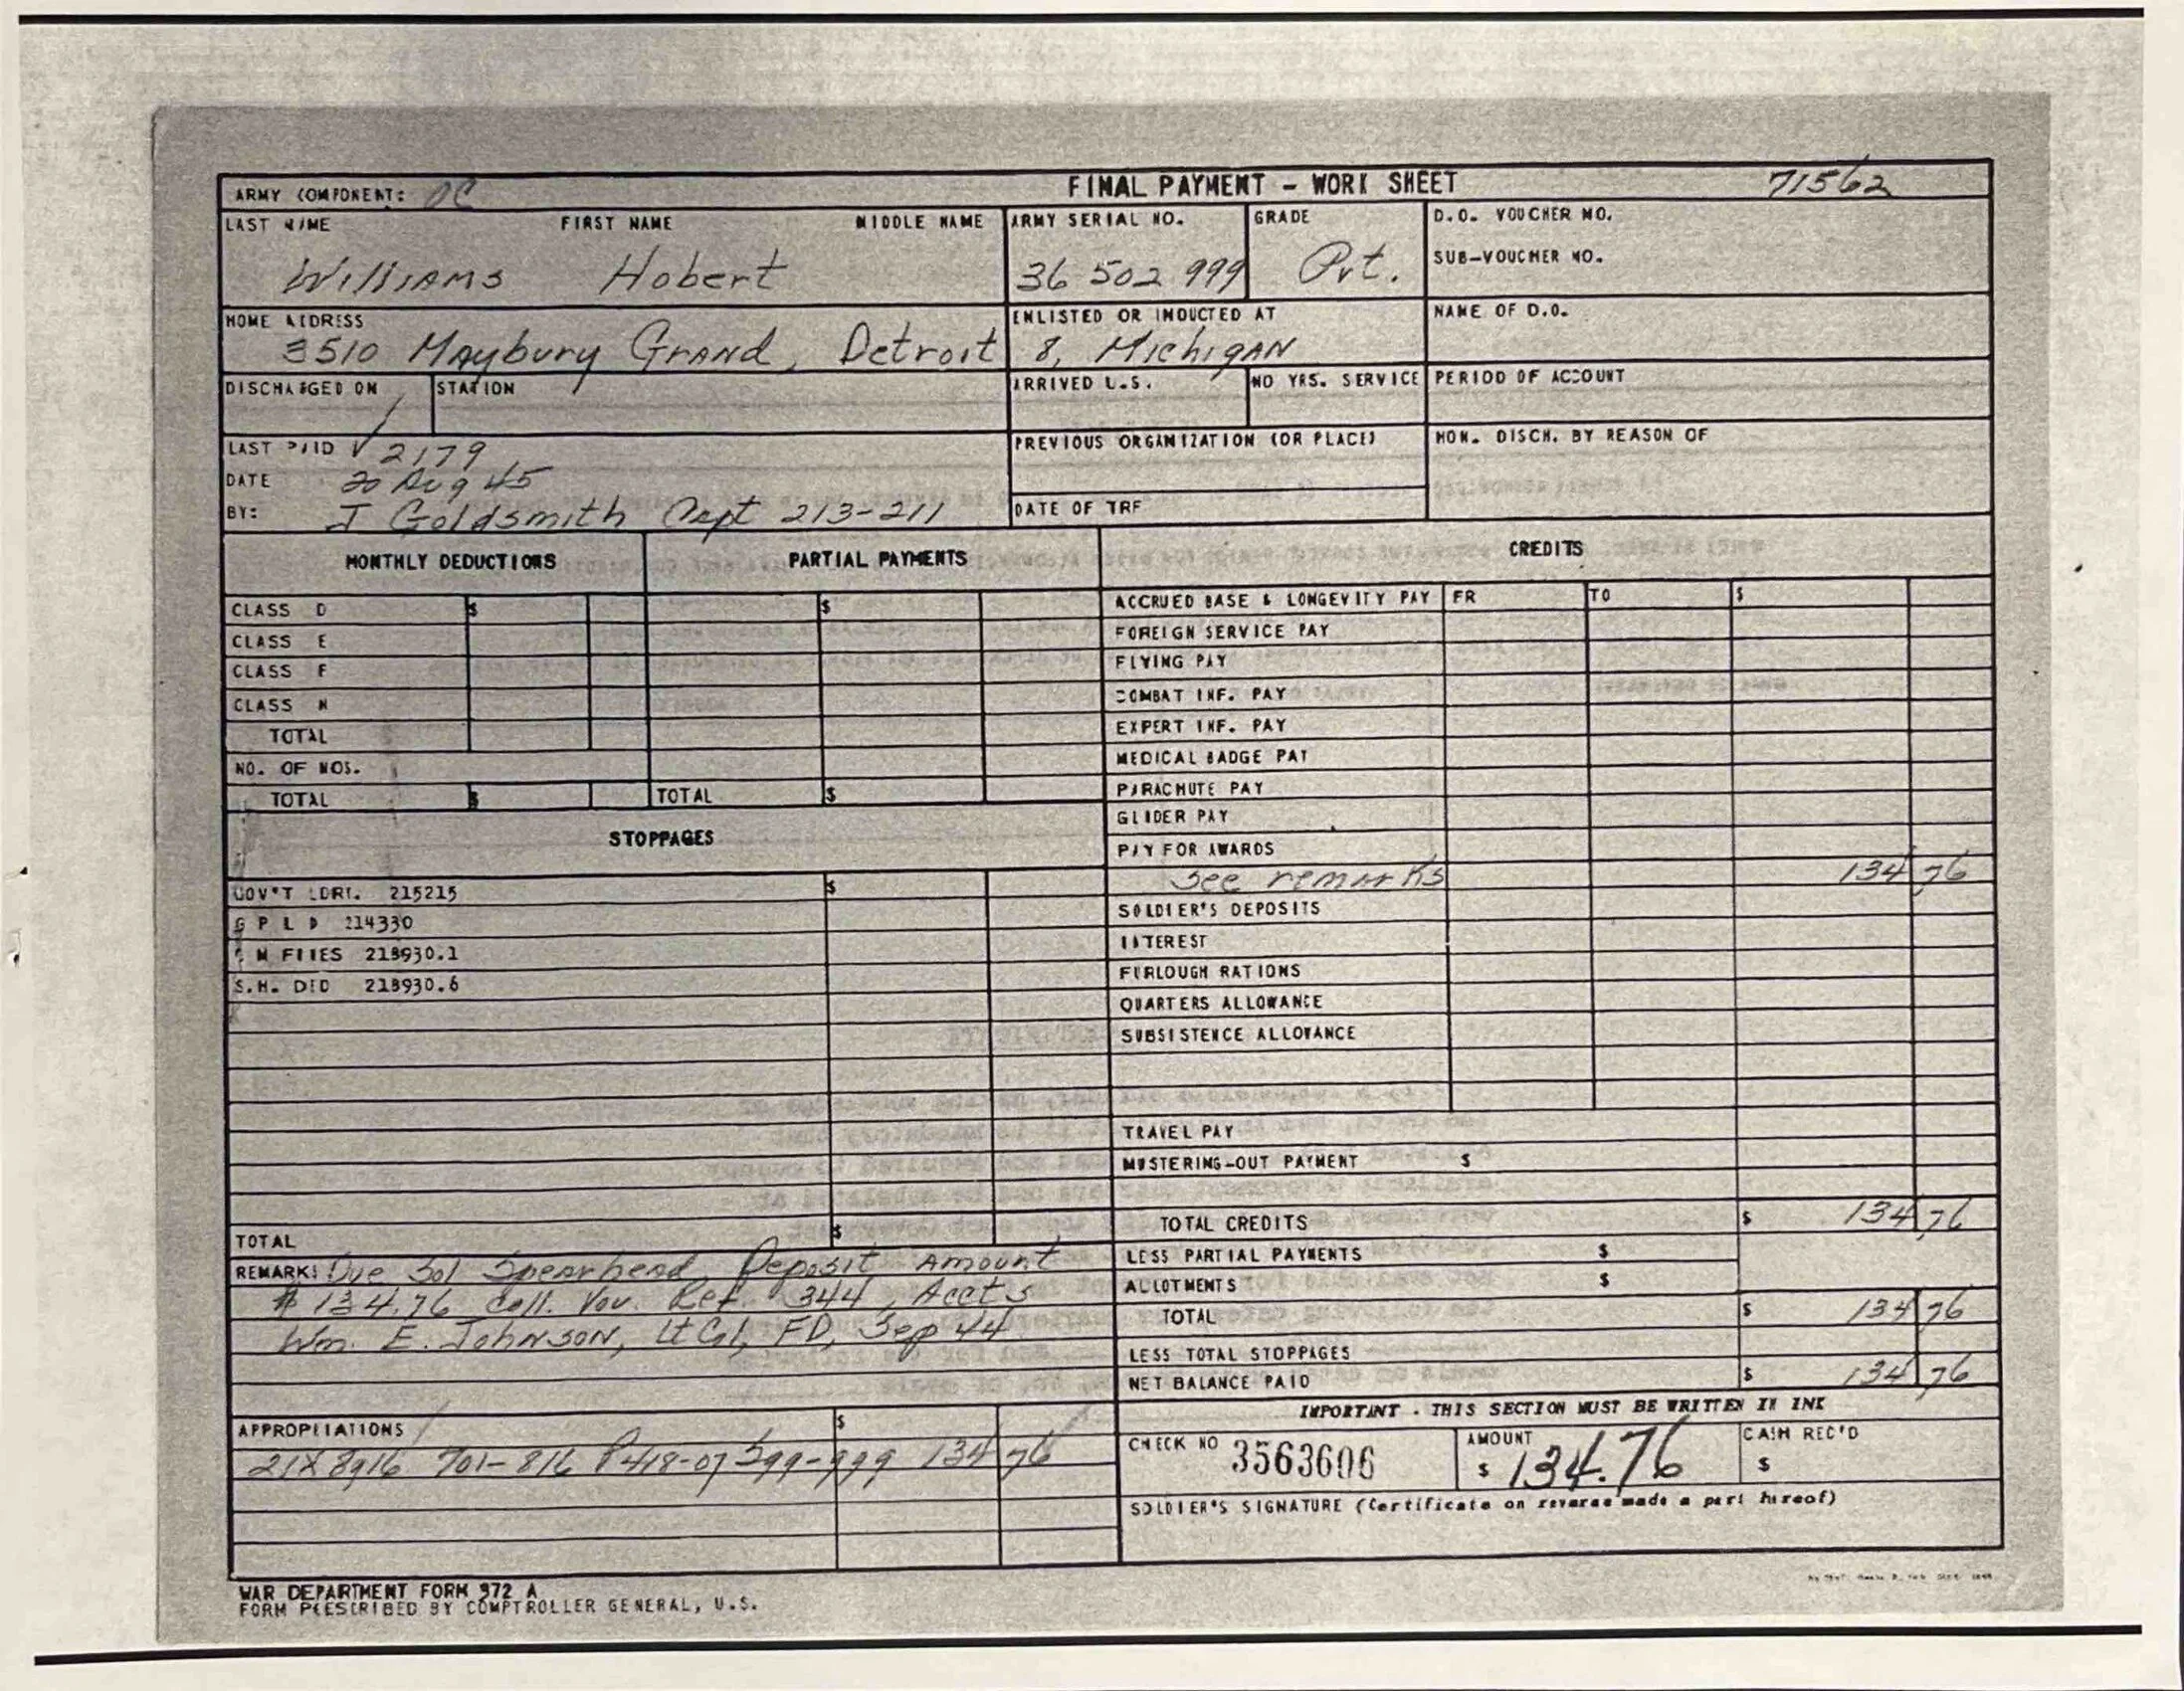 ARMY COMPONENT: FINAL PAYMENT - WORK SHEET 71562
LAST NAME FIRST NAME MIDDLE NAME ARMY SERIAL NO. GRADE D.O. VOUCHER NO.
SUB-VOUCHER NO.
Williams Hobert 36 502 999 Pvt.
HOME ADDRESS ENLISTED OR INDUCTED AT NAME OF D.O.
3510 Maybury Grand, Detroit 8, Michigan
DISCHARGED ON STATION ARRIVED U.S. NO YRS. SERVICE PERIOD OF ACCOUNT
LAST PAID V 2179 PREVIOUS ORGANIZATION (OR PLACE) HON. DISCH. BY REASON OF
DATE 20 Aug 45
BY: J Goldsmith Capt 213-211 DATE OF TRF
MONTHLY DEDUCTIONS PARTIAL PAYMENTS CREDITS
CLASS D $ $ ACCRUED BASE & LONGEVITY PAY FR TO $
CLASS E FOREIGN SERVICE PAY
CLASS F FLYING PAY
CLASS N COMBAT INF. PAY
TOTAL EXPERT INF. PAY
NO. OF MOS. MEDICAL BADGE PAY
TOTAL $ TOTAL $ PARACHUTE PAY
GLIDER PAY
STOPPAGES PAY FOR AWARDS
GOV'T LDRY. 215215 $ See remarks 134 76
G P L D 214330 SOLDIER'S DEPOSITS
C M FINES 218930.1 INTEREST
S.H. DED 218930.6 FURLOUGH RATIONS
QUARTERS ALLOWANCE
SUBSISTENCE ALLOWANCE
TRAVEL PAY
MUSTERING-OUT PAYMENT $
TOTAL $ TOTAL CREDITS $ 134 76
REMARKS Due Sol Spearhead Deposit Amount LESS PARTIAL PAYMENTS $
$134.76 Coll. Vou. Ref. 344, Accts ALLOTMENTS $
Wm. E. Johnson, Lt Col, FD, Sep 44 TOTAL $ 134 76
LESS TOTAL STOPPAGES
NET BALANCE PAID $ 134 76
IMPORTANT - THIS SECTION MUST BE WRITTEN IN INK
APPROPRIATIONS $ CHECK NO 3563606 AMOUNT $ 134.76 CASH REC'D $
21X8916 701-816 P418-07 S99-999 134 76
SOLDIER'S SIGNATURE (Certificate on reverse made a part hereof)
WAR DEPARTMENT FORM 372 A
FORM PRESCRIBED BY COMPTROLLER GENERAL, U.S.